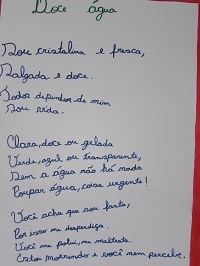 Doce água
Sou cristalina e fresca,
Salgada e doce.
Todos dependem de mim
Sou vida.
Clara, doce ou gelada
Verde, azul ou transparente,
Sem a água não há nada
Poupar água, coisa urgente!
Você acha que sou farta,
Por isso me desperdiça.
Você me polui, me maltrata.
Estou morrendo e você nem percebe.